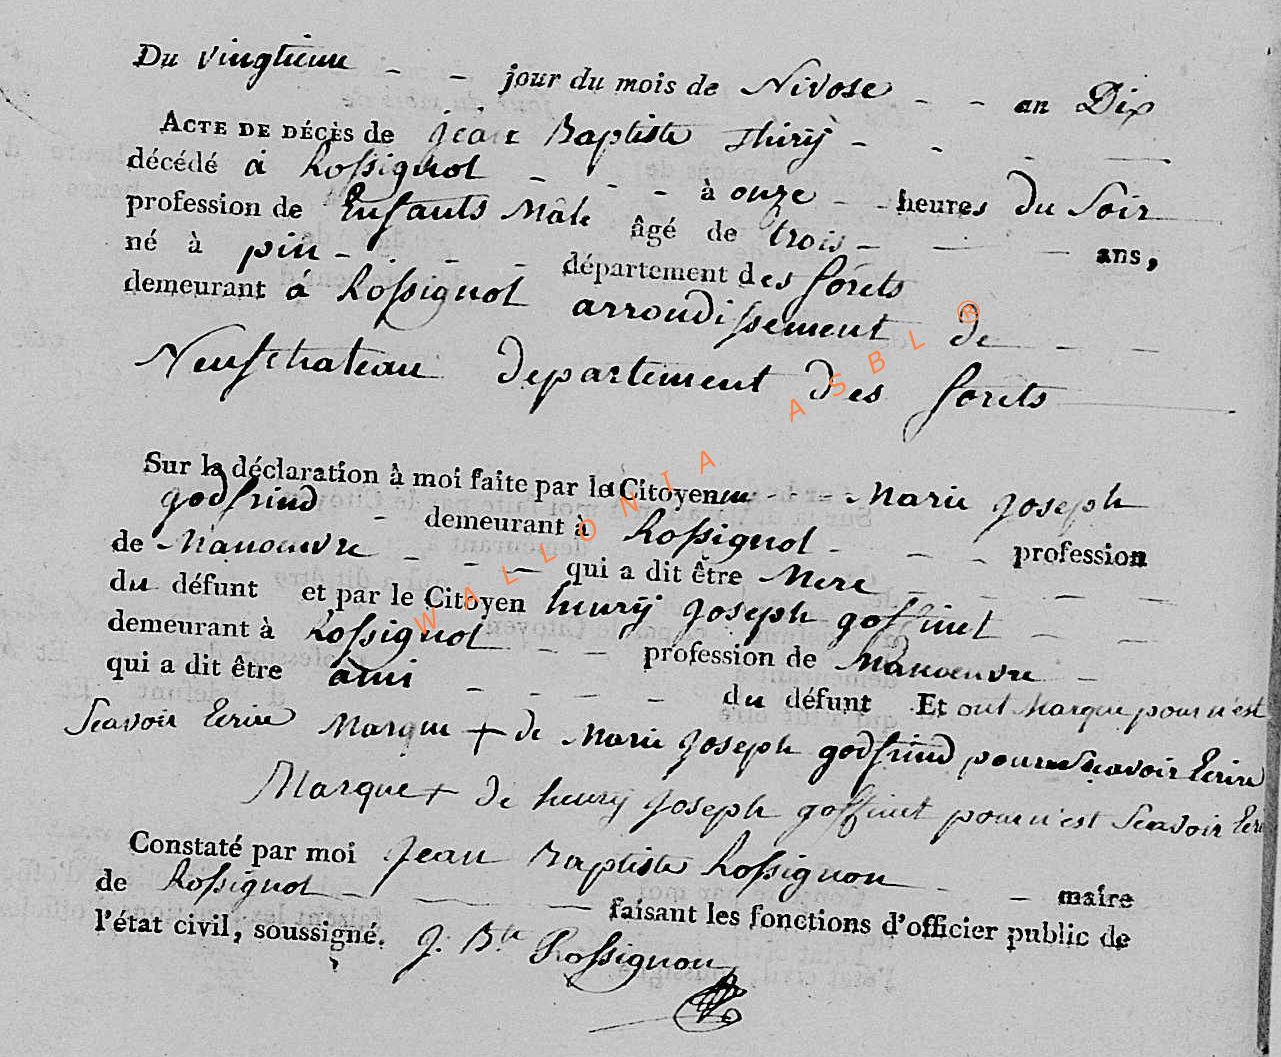 Du vingtieme - - jour du mois de Nivose - - an Dix
ACTE DE DÉCÈS de jean Baptiste Thirÿ - - -
décédé à Rossignol - - - à onze - - heures du Soir
profession de Enfants Mâle âgé de trois - - - ans,
né à pin - - - - département des forêts
demeurant à Rossignol arrondissement de - -
Neufchateau departement des forêts
Sur la déclaration à moi faite par la Citoyenne - - - Marie joseph
godfrind - demeurant à Rossignol - - - profession
de Manoeuvre - - - qui a dit être Mere - - - -
du défunt et par le Citoyen henrÿ joseph goffinet - -
demeurant à Rossignol - - - profession de Manoeuvre -
qui a dit être ami - - - - du défunt Et ont Marque pour n'est
Scavoir Ecrire Marque + de Marie joseph godfrind pour ne Scavoir Ecrire
Marque + de henrÿ joseph goffinet pour n'est Scavoir Ecri
Constaté par moi jean Baptiste Rossignon - - maire
de Rossignol - - - faisant les fonctions d'officier public de
l'état civil, soussigné. J. Bte Rossignon
WALLONIA ASBL ®